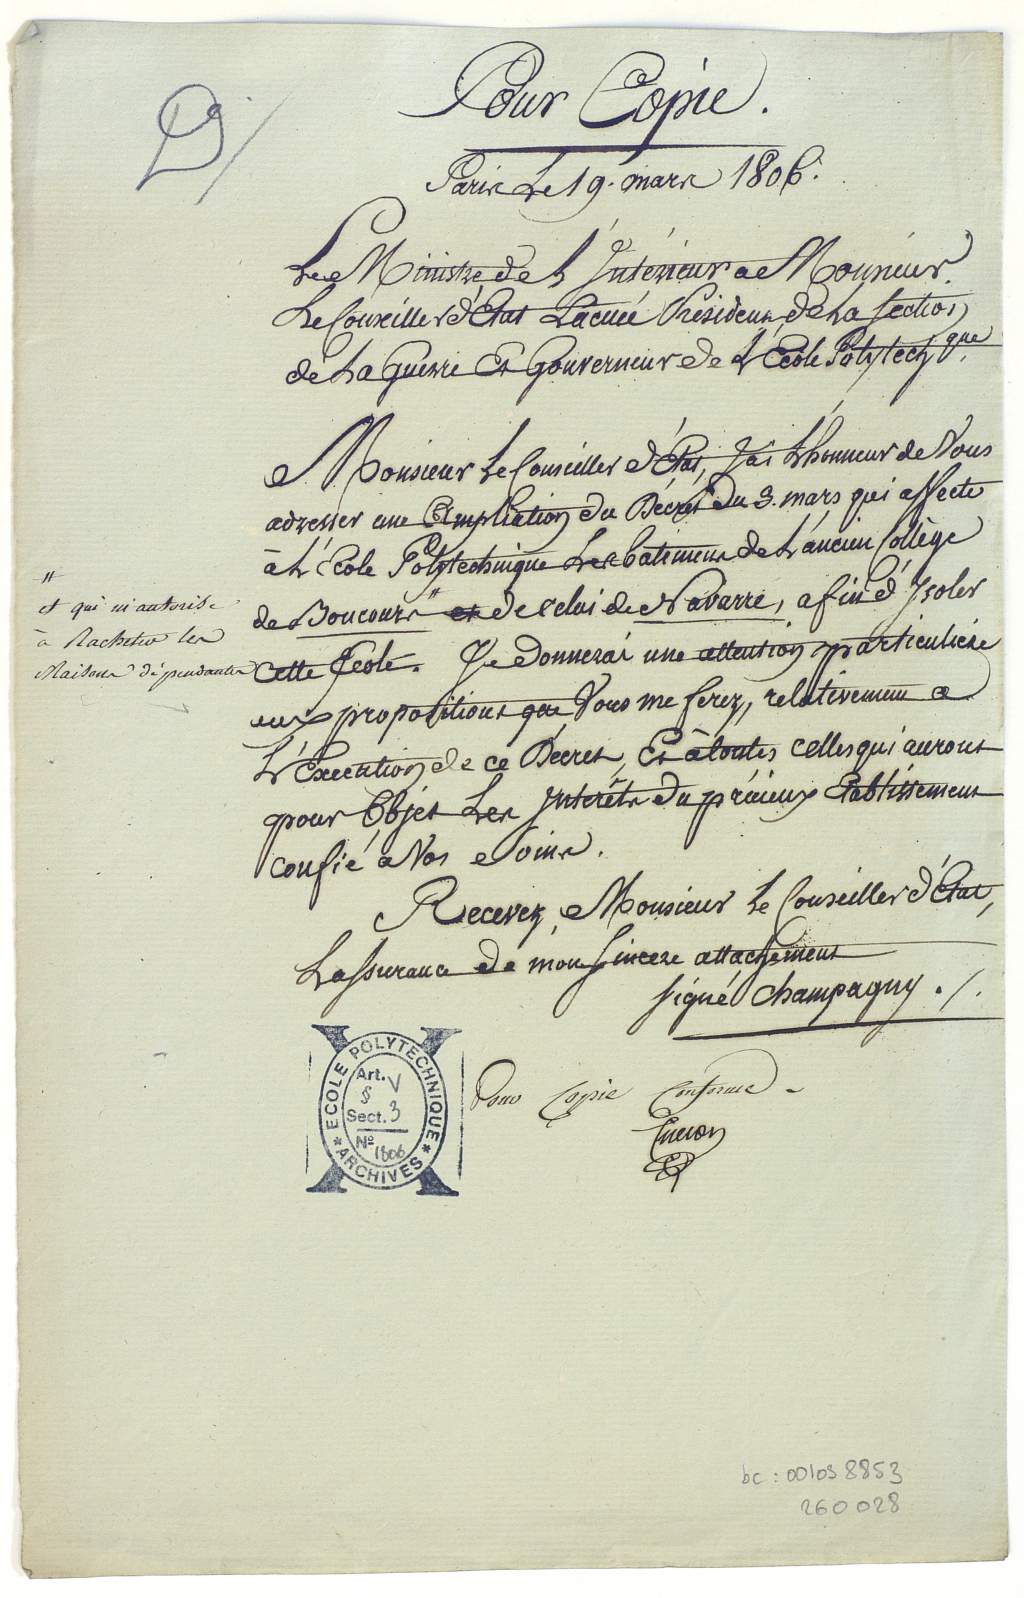 D/
Pour Copie.
Paris le 19. mars 1806.
Le Ministre de l'Intérieur a Monsieur.
Le Conseiller d'État Lacuée Président de la Section
de la Guerre Et Gouverneur de l'École Polytechque
Monsieur Le Conseiller d'État, J'ai l'honneur de Vous
adresser une Ampliation du Décret du 3. mars qui affecte
à l'École Polytechnique les batimens de l'ancien Collège
de Boncours " et de celui de Navarre, afin d'Isoler
cette École. Je donnerai une attention particulière
aux propositions que Vous me ferez, relativement a
l'Execution de ce Décret, Et à toutes celles qui auront
pour Objet les Interêts du précieux Etablissement
confié a Vos Soins.
"
et qui m'autorise
à Racheter les
Maisons dépendantes
Recevez, Monsieur Le Conseiller d'État,
l'assurance de mon Sincere attachement
signé Champagny ./.
Pour Copie Conforme
ECOLE POLYTECHNIQUE
Art. V
§
Sect. 3
No 1806
* ARCHIVES *
bc : 00105 8853
260 028